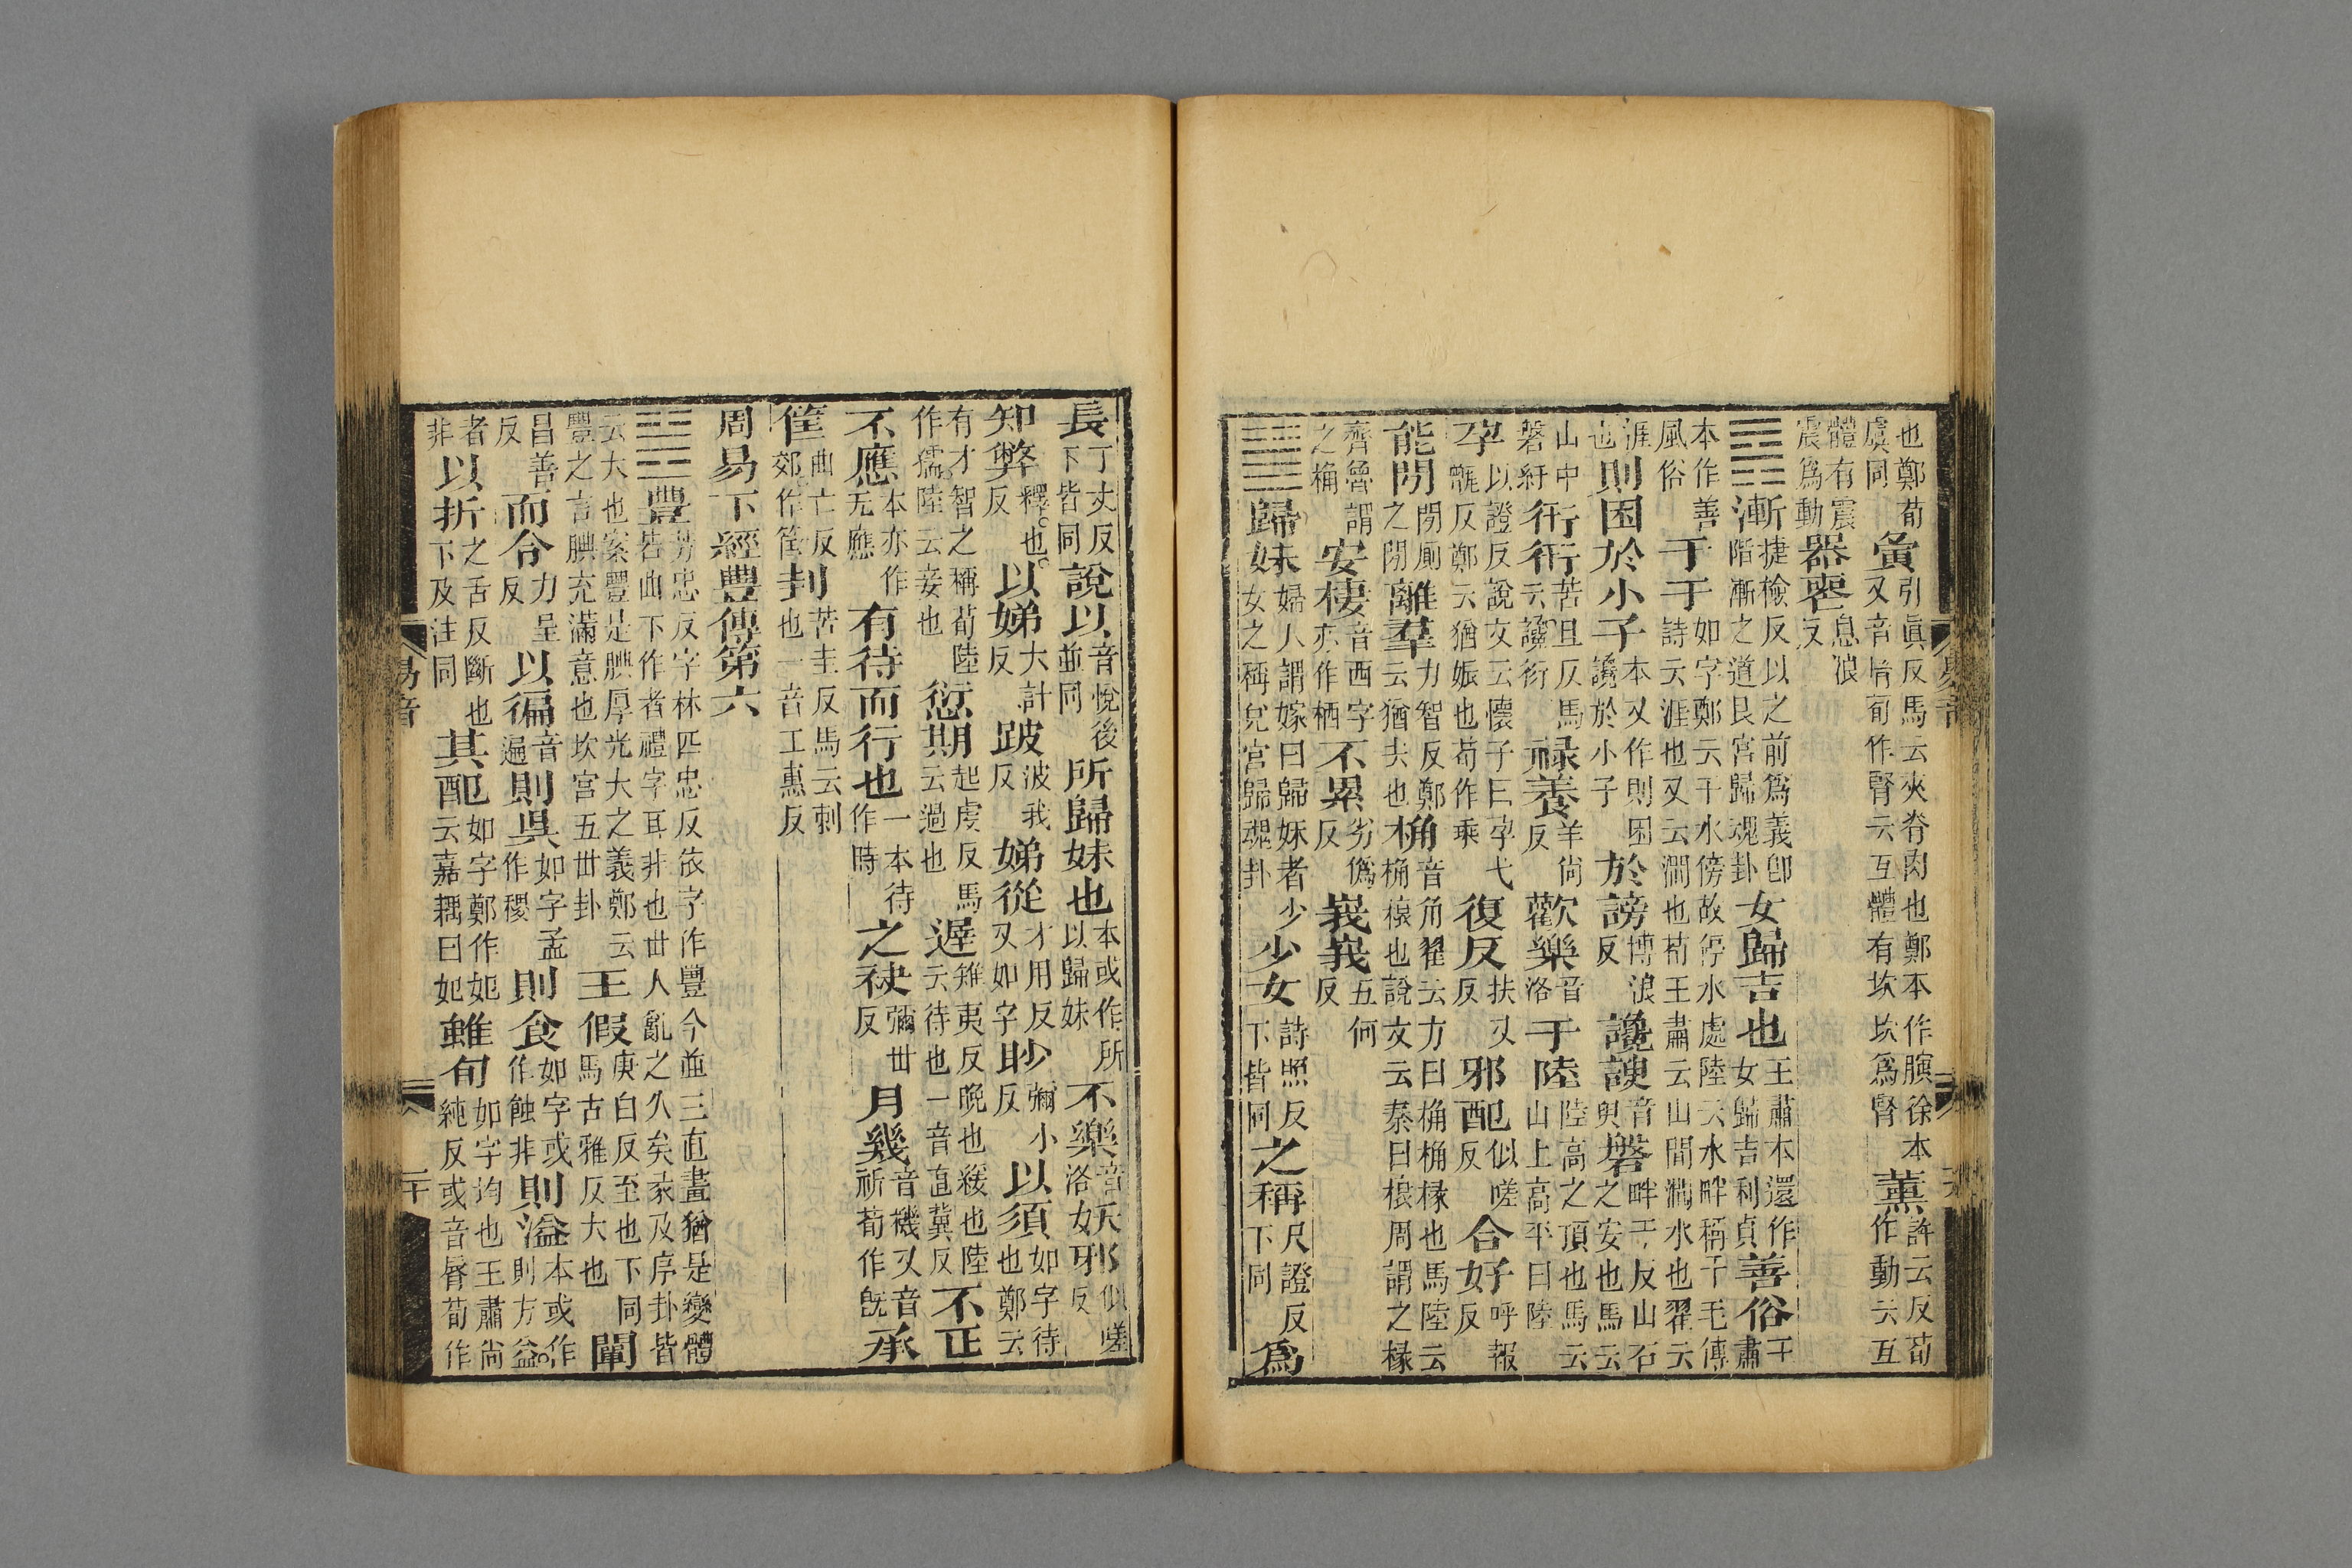 也鄭荀虞同夤引眞反馬云夾脊肉也鄭本作䐮徐本又音胤荀作腎云互體有坎坎爲腎薰許云反荀作動云互
體有震震爲動器喪息浪反
䷴漸捷檢反以之前爲義卽階漸之道艮宮歸魂卦女歸吉也王肅本還作女歸吉利貞善俗王肅
本作善風俗于干如字鄭云干水傍故停水處陸云水畔稱干毛傳詩云涯也又云澗也荀王肅云山間澗水也翟云
涯也則困於小子本又作則困讒於小子於謗博浪反讒諛音與磐畔干反山石之安也馬云
山中磐紆衎衎苦旦反馬云讒衎祿養羊尚反歡樂音洛于陸陸高之頂也馬云山上高平曰陸
孕以證反說文云懷子曰孕弋甑反鄭云猶娠也荀作乘復反扶又反邪配似嗟反合好呼報反
能閑閑廁之閑離羣力智反鄭云猶去也桷音角翟云方曰桷桷椽也馬陸云桷榱也說文云秦曰榱周謂之椽
齊魯謂之桷安棲音西字亦作栖不累劣僞反峩峩五何反
䷵歸妹婦人謂嫁曰歸妹者少女之稱兌宮歸魂卦少女詩照反下皆同之稱尺證反下同爲
長丁丈反下皆同說以音悅後並同所歸妹也本或作所以歸妹不樂音洛妖邪似嗟反
知弊釋也反以娣大計反跛波我反娣從才用反又如字眇彌小反以須如字待也鄭云
有才智之稱荀陸作孺陸云妾也愆期起虔反馬云過也遲雉夷反晚也緩也陸云待也一音直冀反不正
不應本亦作无應有待而行也一本待作時之袂彌世反月幾音機又音祈荀作旣承
筐曲亡反郊作筐刲苦圭反馬云刺也一音工惠反
周易下經豐傳第六
䷶豐芳忠反字林匹忠反依字作豐今並三直畫猶是變體若曲下作者禮字耳非也世人亂之久矣彖及序卦皆
云大也案豐是腆厚光大之義鄭云豐之言腆充滿意也坎宮五世卦王假庚白反至也下同馬古雅反大也闡
昌善反而令力呈反以徧音遍則昃如字孟作稷則食如字或作蝕非則溢本或作則方益
者非以折之舌反斷也下及注同其配如字鄭作妃云嘉耦曰妃雖旬如字均也王肅尚純反或音脣荀作
易音
二十